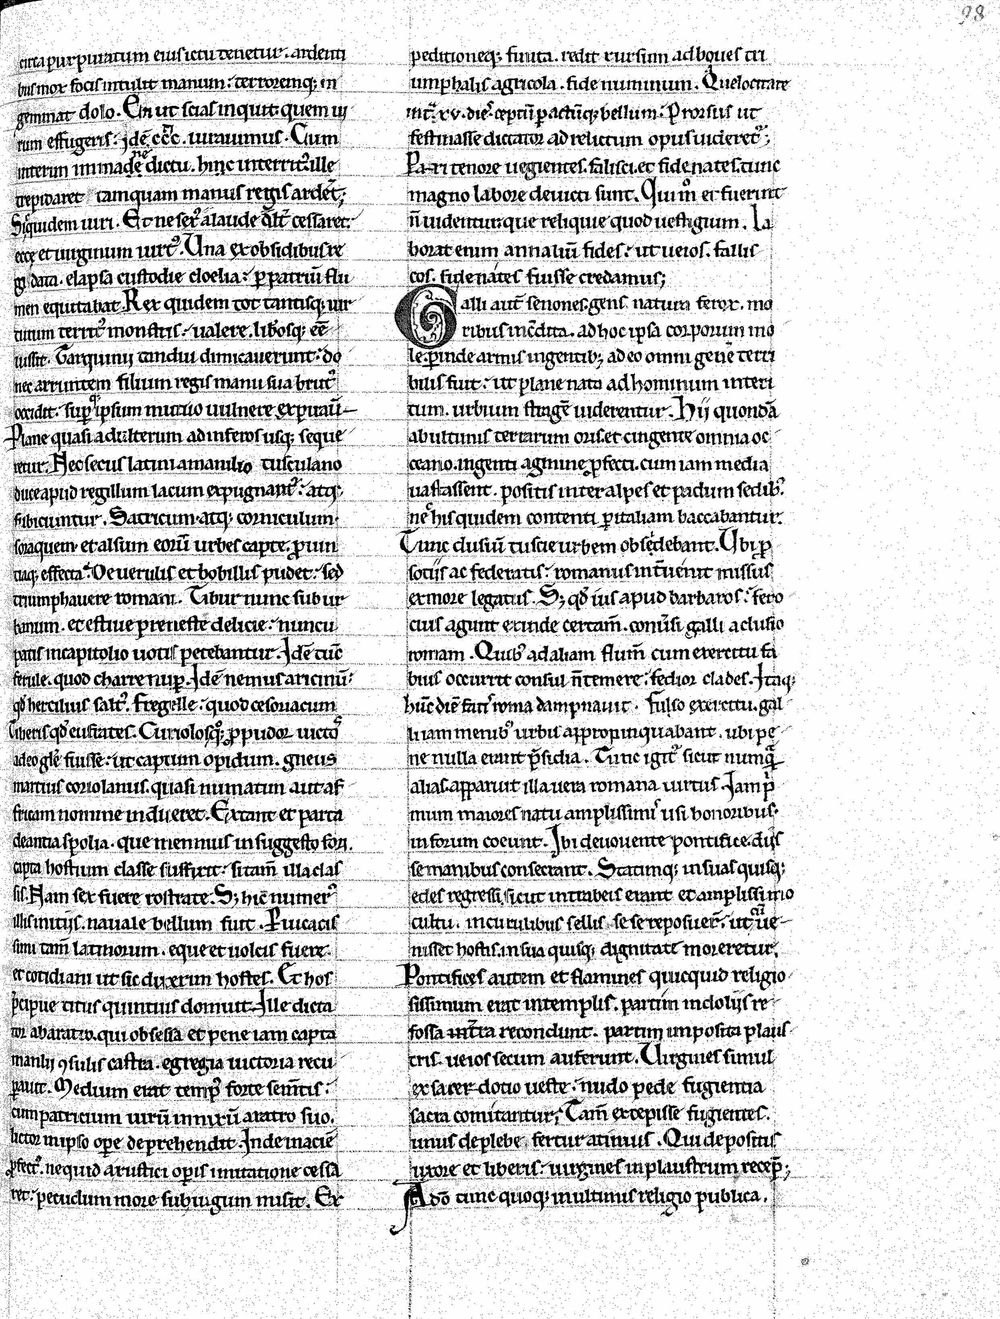 98
circa purpuratum eius ictu tenetur. ardenti
bus mox focis intulit manum: terroremq; in
geminat dolo. En ut scias inquit quem ui
rum effugeris: idē ccc. iurauimus. Cum
interim immane dictu. hinc interritꝰ ille
trepidaret tamquam manus regis ardet̄;
Siquidem uiri. Et ne sexꝰ a laude
ecce et uirginum uirtꝰ. Una ex obsidibus re
gi data. elapsa custodie cloelia: ꝑ patriū flu
men equitabat. Rex quidem tot tantisq; uir
tutum territꝰ monstris: ualere. libosq; eē
iussit. Tarquinij tandiu dimicauerunt: do
nec arruntem filium regis manu sua brutꝰ
occidit: suꝑq; ipsum mutuo uulnere expirauit
Plane quasi adulterum ad inferos usq; seque
retur. Nec secus latini a mamilio tusculano
duce apud regillum lacum expugnant̄: atq;
subiciuntur. Satricum atq; corniculum
soraquem et alsium eorū urbes capte. ꝓuin
tiaq; effecta. De uerulis et bobillis pudet: sed
triumphauere romani. Tibur nunc subur
banum. et estiue preneste delicie: nuncu
patis in capitolio uotis petebantur. Idē tūc
fesule. quod charre nuꝑ. Idē nemus aricinū:
qd herculius saltꝰ. fregelle: quod cesoriacum
Tiberis qd eufrates. Coriolosq; ꝓ pudor uictos
adeo gle fuisse: ut captum opidum. gneus
martius coriolanus. quasi numatim aut af
fricam nomine indueret. Extant et parta
de antia spolia. que mennius in suggesto fori.
capta hostium classe suffixit: si tam̄ illa clas
sis. Nam sex fuere rostrate. S; hic numerꝰ
illis initijs. nauale bellum fuit. Peruicacis
simi tam̄ latinorum. eque et uolsci fuere.
et cotidiani ut sic dixerim hostes. Et hos
p̄cipue titus quintius domuit. Ille dicta
tor ab aratro. qui obsessa et pene iam capta
manlij ꝯsulis castra. egregia uictoria recu
ꝑauit. Medium erat tempꝰ forte sem̄tis:
cum patricium uirū innixū aratro suo.
lictor in ipso oꝑe deprehendit. Inde in acie
ꝓfectꝰ. ne quid a rustici oꝑis imitatione cessa
ret: pecudum more sub iugum misit. Ex
peditioneq; finita. redit rursum ad boues tri
umphalis agricola. fide numinum. Que locitate
int̄. xv. dieꝰ ceptū ꝑactūq; bellum. Prorsus ut
festinasse dictator ad relictum opus uideretꝰ;
Pari tenore uegientes. falisci. et fidenates. tunc
magno labore deuicti sunt. Qui m̊ et fuerint
n̄ uidentur. que reliquie quod uestigium. La
borat enim annaliū fides: ut ueios. falis
cos. fidenates fuisse credamus;
Galli aut̄ senones. gens natura ferox. mo
ribus incōdita. ad hoc ipsa corporum mo
le. ꝑinde armis ingentib; adeo omni gen̄e terri
bilis fuit: ut plane nata ad hominum interi
tum. urbium stragē uiderentur. Hij quondā
ab ultimis terrarum oris. et cingente omnia oc
ceano. ingenti agmine ꝓfecti. cum iam media
uastassent. positis inter alpes et padum sedibꝰ.
ne his quidem contenti ꝑ italiam baccabantur.
Tunc clusiū tuscie urbem obsidebant. Ubi ꝓ
sotijs ac federatis: romanus int̄uenit missus
ex more legatus. S; qd ius apud barbaros: fero
cius agunt exinde certam̄. conuersi galli a clusio
romam. Quibꝰ ad aliam flum̄ cum exercitu fa
bius occurrit consul n̄ temere: fedior clades. Itaq;
hūc diē fastis roma dampnauit. Fulso exercitu. gal
li iam menibꝰ urbis appropinquabant. ubi pe
ne nulla erant p̄sidia. Tunc igitꝰ sicut numq̄
alias. apparuit illa uera romana uirtus. Iam p̄
mum maiores natu amplissimis usi honoribus.
in forum coeunt. Ibi deuouente pontifice. dijs
se manibus consecrant. Statimq; in suas quisq;
edes regressi. sicut in trabeis erant et amplissimo
cultu. in curulibus sellis sese reposuer̄. ut cū ue
nisset hostis. in sua quisq; dignitate moreretur.
Pontifices autem et flamines quicquid religio
sissimum erat in templis. partim in dolijs re
fossa int̄ra recondunt. partim imposita plaus
tris. ueios secum auferunt. Uirgines simul
ex sacerdotio ueste: nudo pede fugientia
sacra comitantur; Tam̄ excepisse fugientes.
unus de plebe fertur atinius. Qui depositis
uxore et liberis: uirgines in plaustrum recep̄;
Adō tunc quoq; in ultimis religio publica.